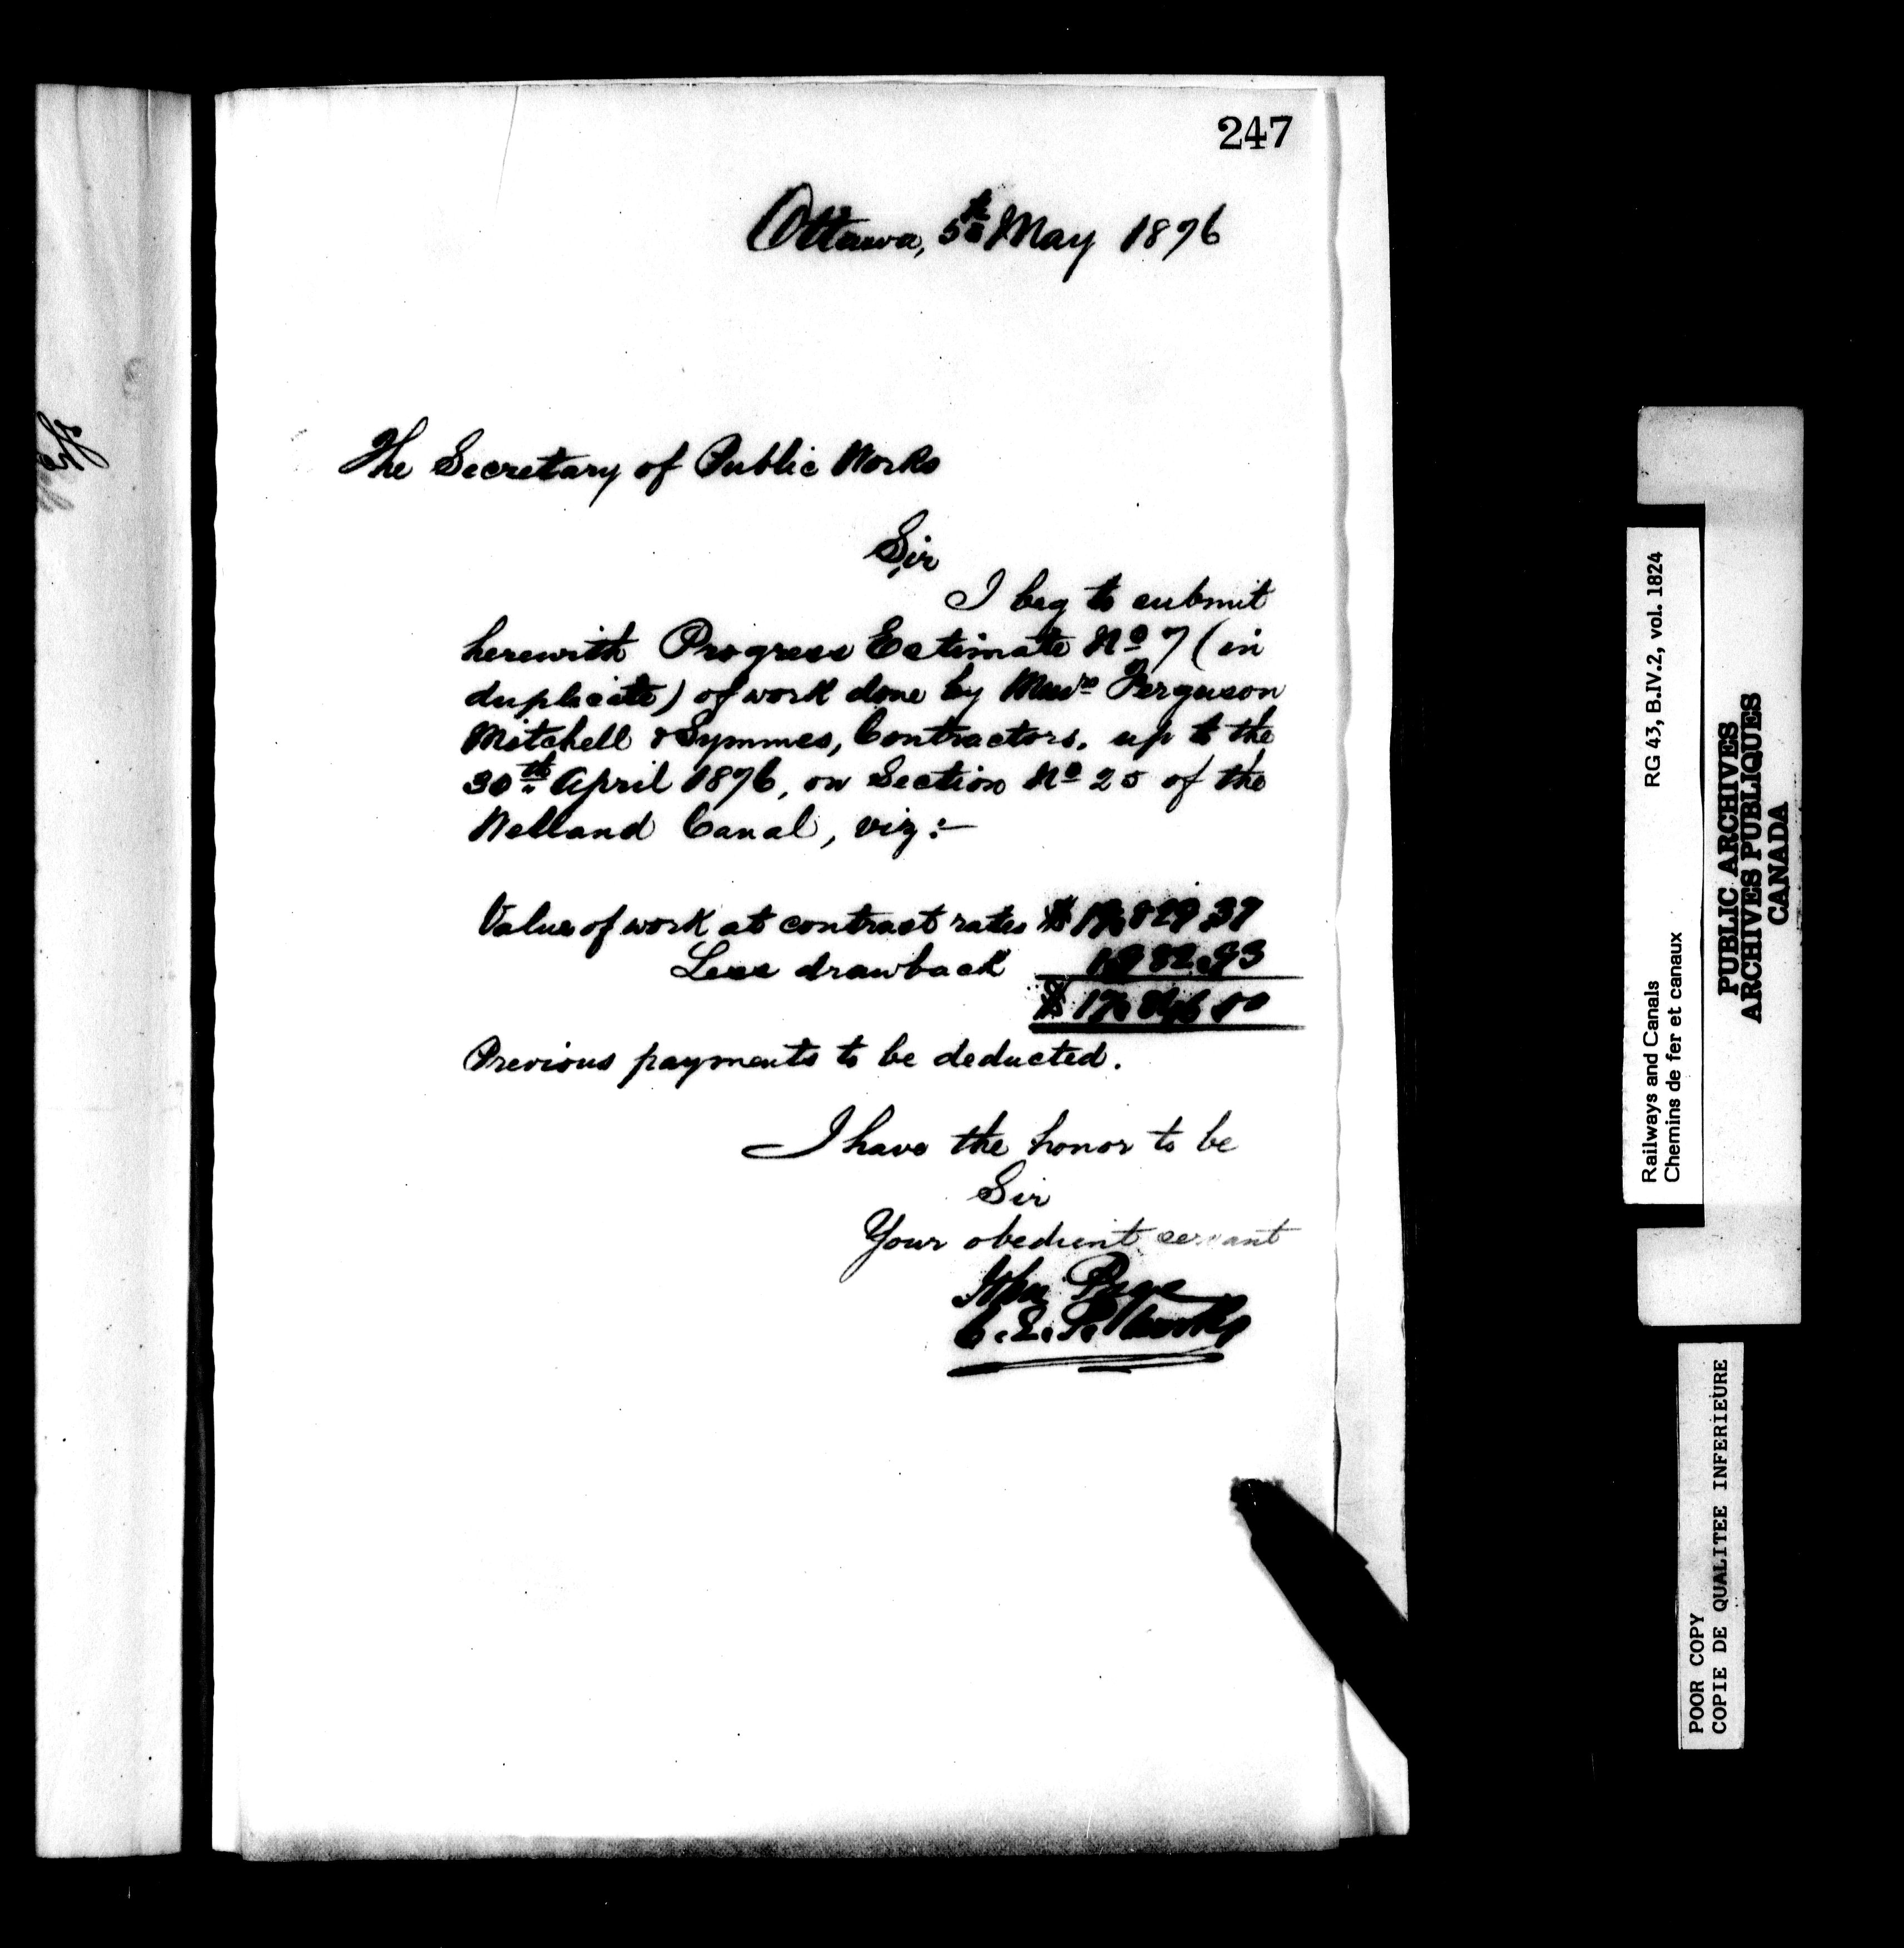 247
Ottawa, 5th May 1876
The Secretary of Public Works
Sir
I beg to submit
herewith Progress Estimate No 7 (in
duplicate) of work done by Messrs Ferguson
Mitchell & Symmes, Contractors, up to the
30th April 1876, on Section No 25 of the
Welland Canal, viz:-
Value of work at contract rates $
Less drawback 1982.93
$
Previous payments to be deducted.
I have the honor to be
Sir
Your obedient servant
John Page
C.E.P. Works
RG 43, B.IV.2, vol. 1824
Railways and Canals
Chemins de fer et canaux
PUBLIC ARCHIVES
ARCHIVES PUBLIQUES
CANADA
POOR COPY
COPIE DE QUALITEE INFERIEURE